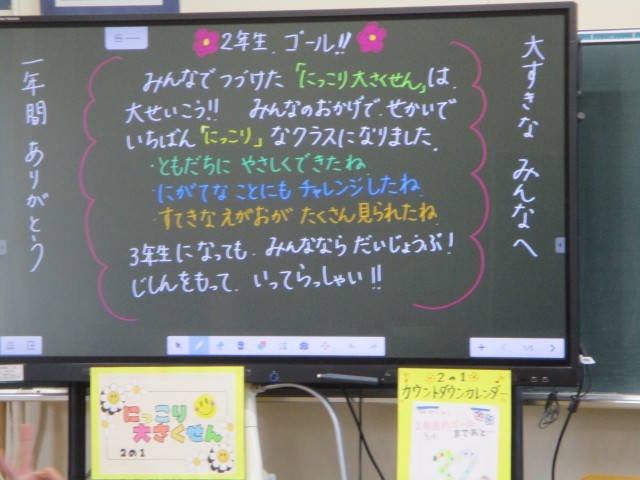 大すきな みんなへ
2年生 ゴール!!
みんなで つづけた「にっこり大さくせん」は、
大せいこう!! みんなのおかげで、せかいで
いちばん「にっこり」なクラスになりました。
・ともだちに やさしくできたね
・にがてな ことにも チャレンジしたね
・すてきな えがおが たくさん見られたね
3年生になっても、みんなならだいじょうぶ!
じしんをもって、いってらっしゃい!!
一年間 ありがとう
1/1
にっこり
大さくせん
2の1
2の1
カウントダウンカレンダー
まであと